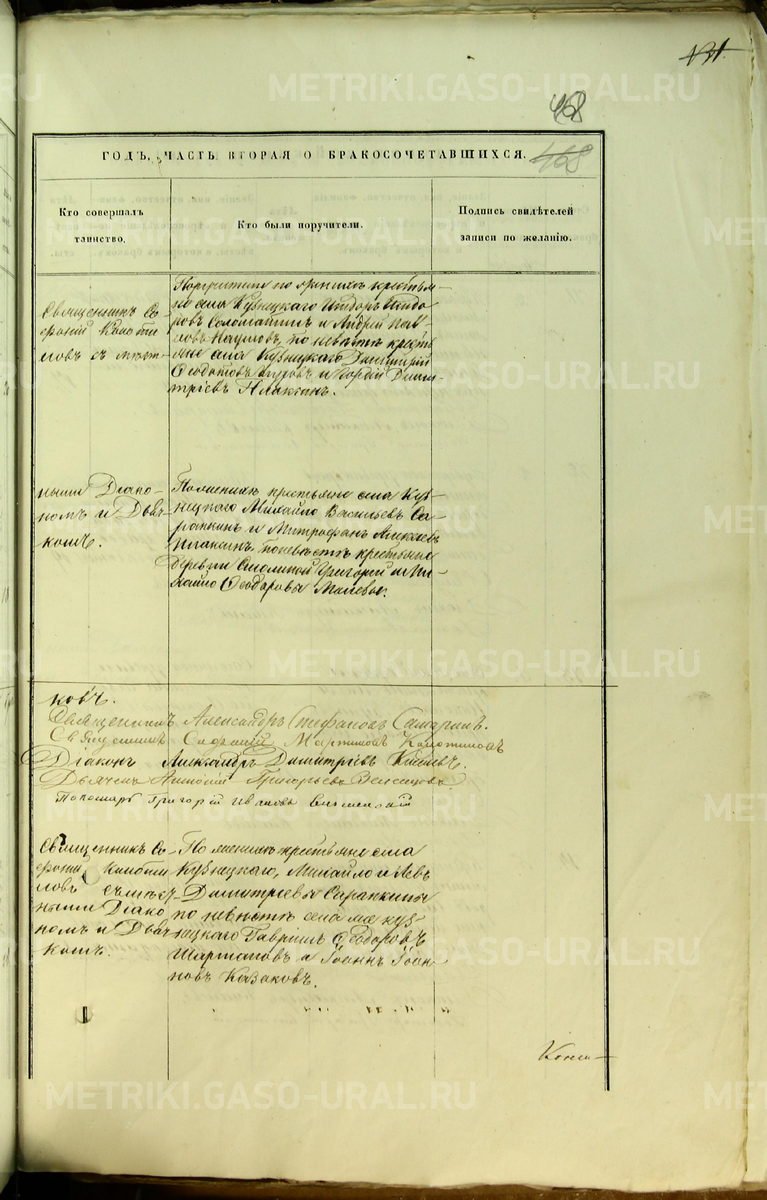 131.
468
ГОДЪ, ЧАСТЬ ВТОРАЯ О БРАКОСОЧЕТАВШИХСЯ.
468
Кто совершалъ
таинство.
Кто были поручители.
Подпись свидѣтелей
записи по желанію.
Священникъ Со-
фроній
ловъ съ мѣст-
Поручители по женихѣ крестья-
не села Кузнецкаго Исидоръ Исидо-
ровъ Соломатинъ и Андрей Пав-
ловъ Наумовъ, по невѣстѣ кресть-
яне села Кузнецкаго Димитрій
Ѳеодотовъ и Гордій Дими-
тріевъ
нымъ Діако-
номъ и Дьяч-
комъ.
По женихѣ крестьяне села Куз-
нецкаго Михайло Васильевъ Са-
рапкинъ и Митрофанъ Алексѣевъ
по невѣстѣ крестьяне
деревни Смолиной Григорій и Ми-
хайло Ѳеодоровы
ковъ.
Священникъ Александръ Стефановъ
Священникъ Софроній Мартиновъ
Діаконъ Александръ Димитріевъ
Дьячекъ Григорьевъ
Пономарь Григорій Ивановъ
Священникъ Со-
фроній
ловъ съ мѣст-
нымъ Діако
номъ и Дьяч
комъ.
По женихѣ крестьяне села
Кузнецкаго, Михайло и Левъ
Димитріевы Сарапкины
по невѣстѣ села Куз-
нецкаго Гавріилъ Ѳеодоровъ
Шартановъ и Іоаннъ Іоан-
новъ Казаковъ.
METRIKI.GASO-URAL.RU